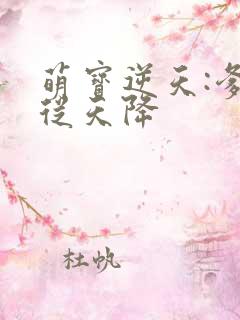 萌寶逆天:爹
從天降
杜帆